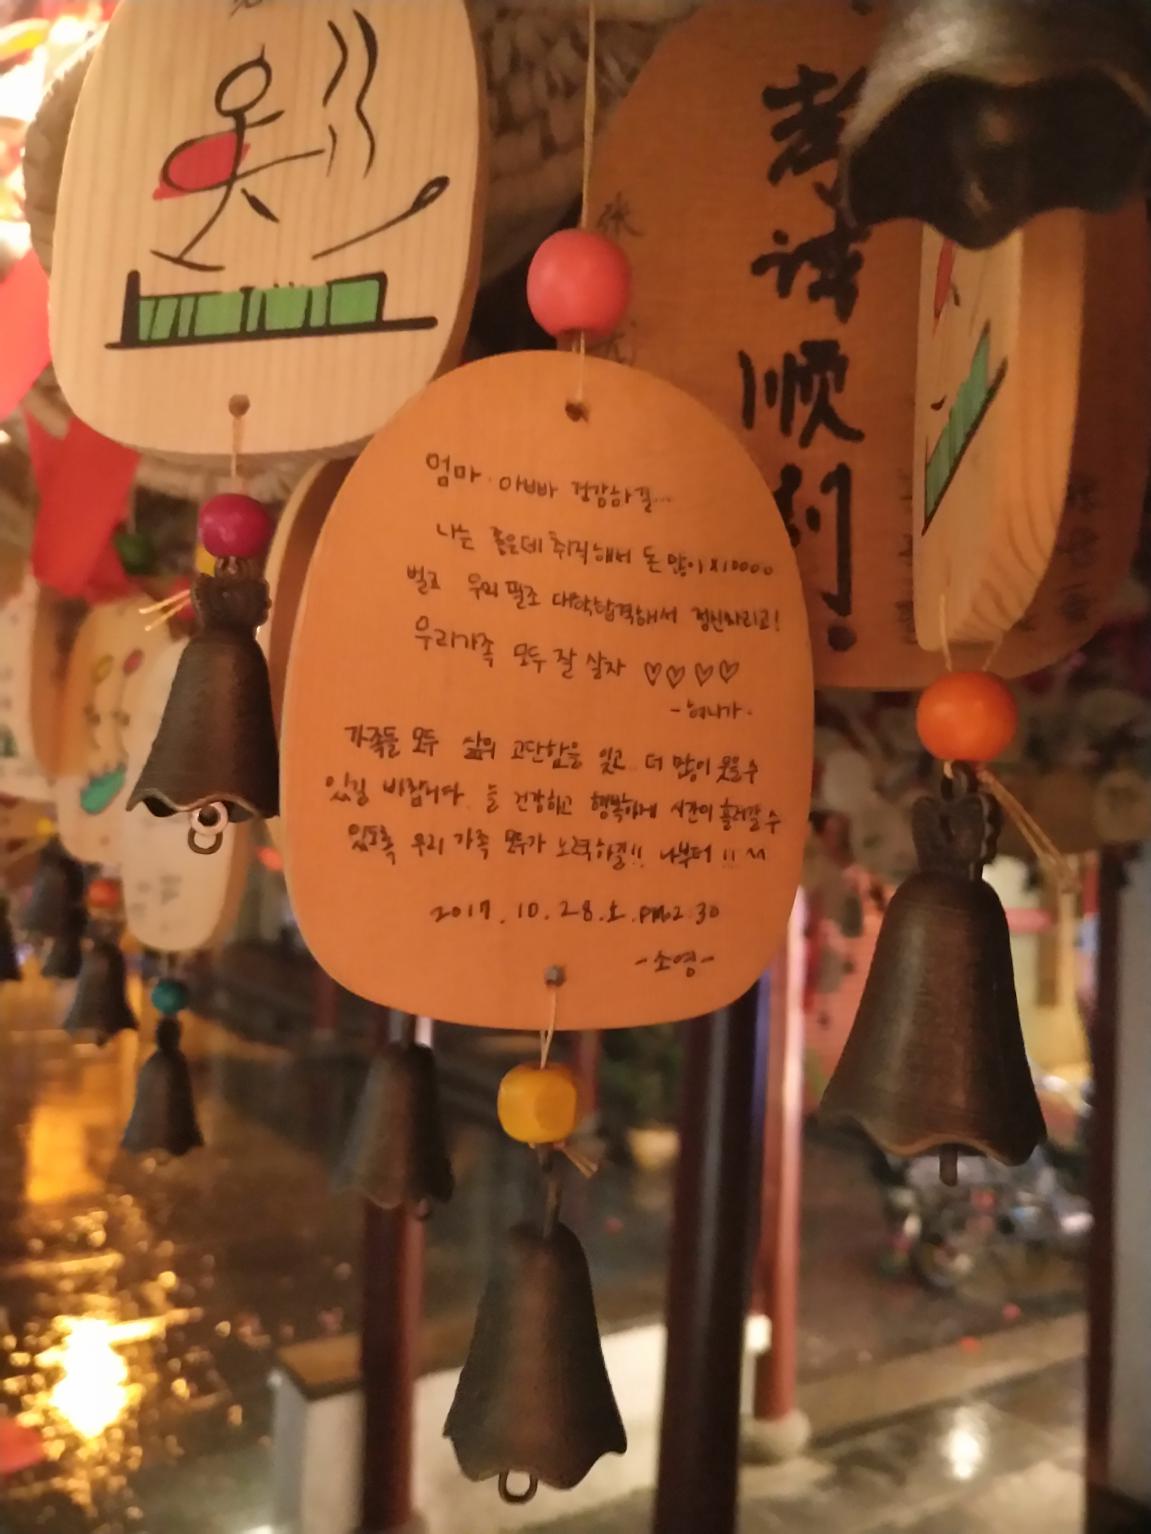 엄마·아빠 건강하길...
나는 좋은데 취직해서 돈 많이 x10000
벌고 우리 필조 대학합격해서 정신차리고!
우리가족 모두 잘 살자 ♡♡♡♡
가족들 모두 삶의 고단함을 잊고 더 많이 웃을 수
있길 바랍니다. 늘 건강하고 행복하게 시간이 흘러갈 수
있도록 우리 가족 모두가 노력하길!! 나부터 !! ^^
2017.10.28.토.PM 2:30
-소영-
考试顺利!
张